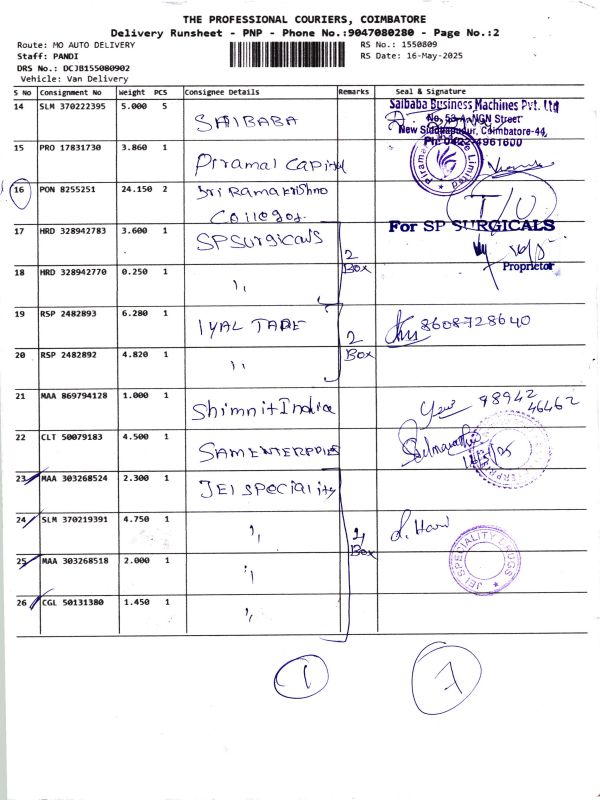 THE PROFESSIONAL COURIERS, COIMBATORE
Delivery Runsheet - PNP - Phone No.:9047080280 - Page No.:2
Route: MO AUTO DELIVERY RS No.: 1550809
Staff: PANDI RS Date: 16-May-2025
DRS No.: DCJB155080902
Vehicle: Van Delivery
S No Consignment No Weight PCS Consignee Details Remarks Seal & Signature
14 SLM 370222395 5.000 5 SAIBABA
Saibaba Business Machines Pvt. Ltd
No. 59-A, NGN Street
New Siddhapudur, Coimbatore-44,
Ph: 0422-4961600
15 PRO 17831730 3.860 1 Piramal Capital
16 PON 8255251 24.150 2 Sri Ramakrishno T/O
17 HRD 328942783 3.600 1 SP Surgicals
For SP SURGICALS
18 HRD 328942770 0.250 1 ,, 2 Box
Proprietor
19 RSP 2482893 6.280 1 IYAL TADE 8608728640
20 RSP 2482892 4.820 1 ,, 2 Box
21 MAA 869794128 1.000 1 Shimnit India 98942 46462
22 CLT 50079183 4.500 1 SAM ENTERPRIES
23 MAA 303268524 2.300 1 JEI SPECIALity
24 SLM 370219391 4.750 1 ,, 4 Box
25 MAA 303268518 2.000 1 ,,
JEI SPECIALITY DRUGS
26 CGL 50131380 1.450 1 ,,
1 7